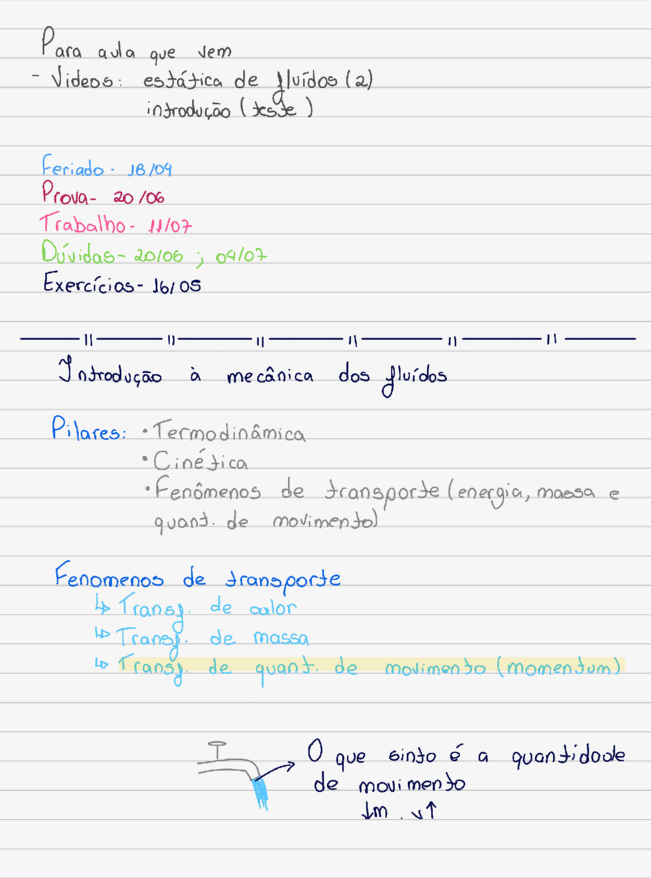 Para aula que vem
- Videos: estática de fluídos (2)
introdução (teste)
Feriado - 18/04
Prova - 20/06
Trabalho - 11/07
Dúvidas - 20/06 ; 04/07
Exercícios - 16/05
Introdução à mecânica dos fluídos
Pilares: • Termodinâmica
• Cinética
• Fenômenos de transporte (energia, massa e
quant. de movimento)
Fenomenos de transporte
↳ Transf. de calor
↳ Transf. de massa
↳ Transf. de quant. de movimento (momentum)
O que sinto é a quantidade
de movimento
↓m . v↑